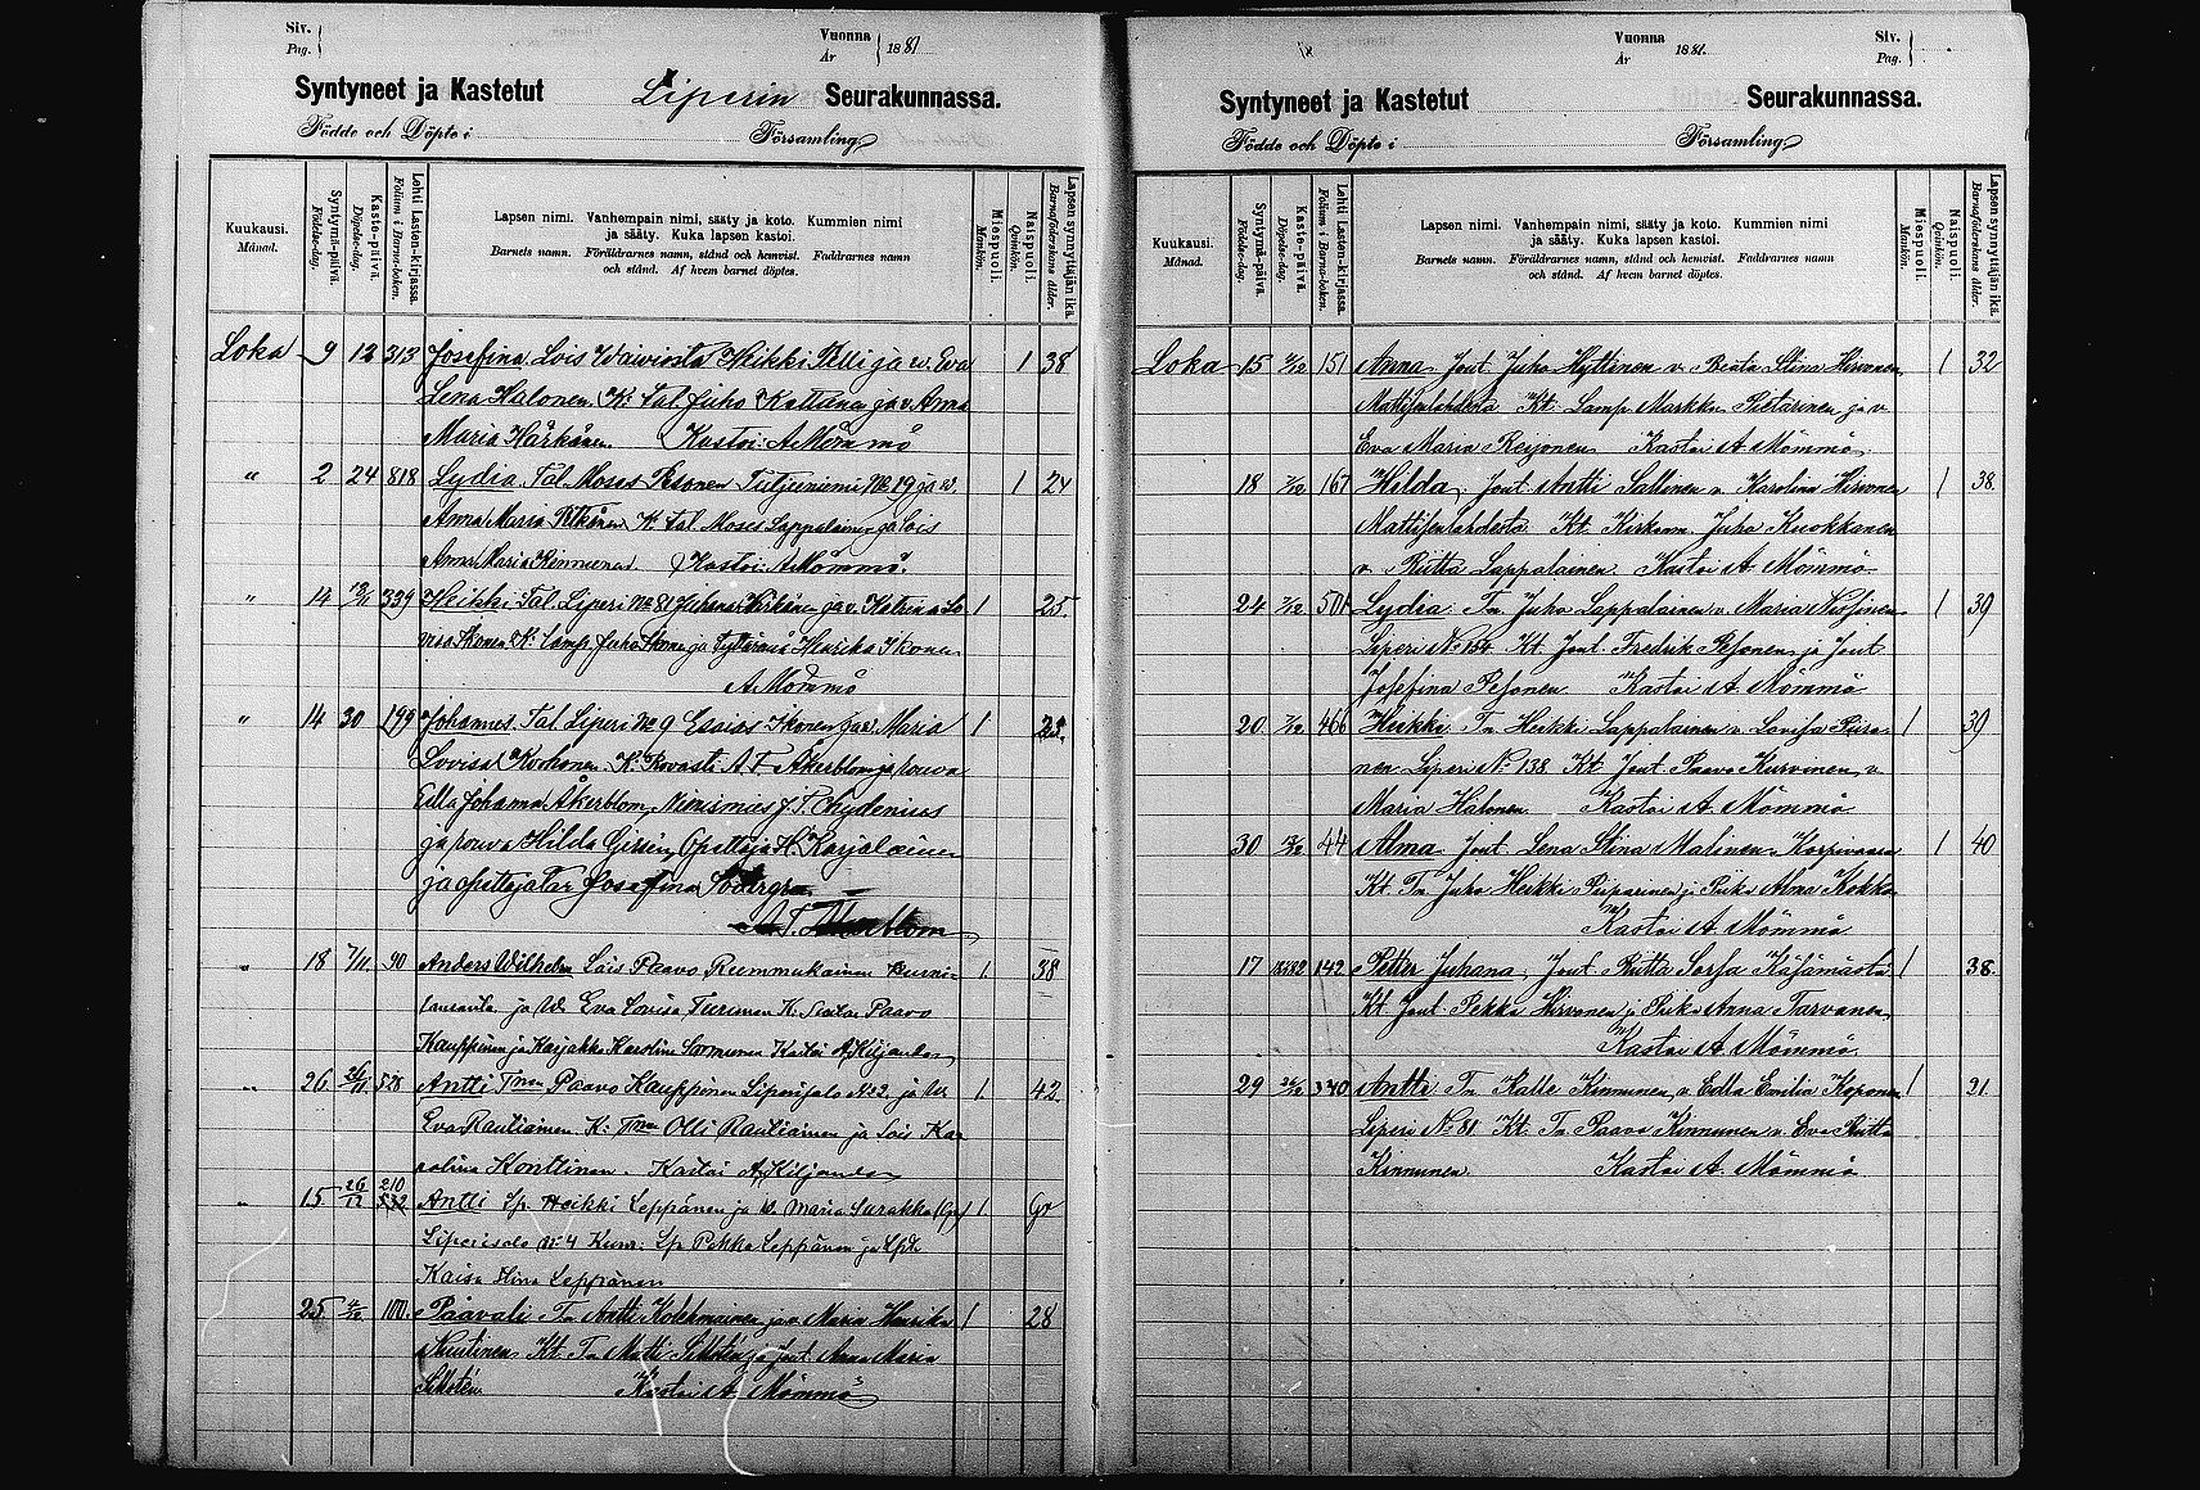 Siv.
Pag.
Vuonna
År
1881
Syntyneet ja Kastetut Liperin Seurakunnassa.
Födde och Döpte i Församling
Kuukausi.
Månad.
Syntymä-päivä.
Födelse-dag.
Kaste-päivä.
Döpelse-dag.
Lehti Lasten-kirjassa.
Folium i Barna-boken.
Lapsen nimi. Vanhempain nimi, sääty ja koto. Kummien nimi
ja sääty. Kuka lapsen kastoi.
Barnets namn. Föräldrarnes namn, stånd och hemvist. Faddrarnes namn
och stånd. Af hvem barnet döptes.
Miespuoli.
Mankön.
Naispuoli.
Qvinkön.
Lapsen synnyttäjän ikä.
Barnaföderskans ålder.
Loka 9 12 313 Josefina Lois Heikki ja w. Eva 1 38
Lena Halonen K: tal. Juho Kettunen ja v. Anna
Maria Härkönen. Kastoi: A Mömmö
" 2 24 818 Lydia Tal. Moses Pesonen Tutjunniemi No 19 ja w. 1 24
Anna Maria Pitkänen K: tal. Moses Lappalainen ja lois
Anna Maria Kinnunen. Kastoi: A Mömmö.
" 14 339 Heikki Tal. Liperi No 81 Juhana ja v. Katrina Lo 1 25.
visa Ikonen K: Lamp. Juho Ikonen ja Henrika Ikonen
A Mömmö
" 14 30 199 Johannes. Tal. Liperi No 9 Esaias Ikonen ja v. Maria 1
Lovisa Korhonen. K: Rovasti A. F. Åkerblom ja rouva
Edla Johanna Åkerblom, Nimismies J. T. Chydenius
ja rouva Hilda Opettaja H. Karjalainen
ja opettajatar Josefina
" 18 7/11. 90 Anders Wilhelm Lois Paavo Rummukainen 1. 38
ja W. Eva Lovisa Turunen K: Paavo
Kauppinen ja Karoline Sormunen Kastoi A Kiljander
" 26 26/11. 528 Antti Tmn Paavo Kauppinen Liperisalo No 2. ja W. 1. 42.
Eva Rautiainen. K: Tmn Olli Rautiainen ja Lois Ka
rolina Konttinen. Kastoi A Kiljander
" 15 26/12 210 532 Antti Lp. Heikki Leppänen ja W. Maria Surakka (Gr) 1. Gr
Liperisalo No 4 Kum: Lp Pekka Leppänen ja
Kaisa Stina Leppänen
25 4/12 100. Paavali Tn Antti Kolehmainen ja v. Maria Henrika 1 28
Nuutinen Kt. Tn Matti ja Jout. Anna Maria
Kastoi A. Mömmö
Vuonna
År
1881.
Siv.
Pag.
Syntyneet ja Kastetut Seurakunnassa.
Födde och Döpte i Församling
Kuukausi.
Månad.
Syntymä-päivä.
Födelse-dag.
Kaste-päivä.
Döpelse-dag.
Lehti Lasten-kirjassa.
Folium i Barna-boken.
Lapsen nimi. Vanhempain nimi, sääty ja koto. Kummien nimi
ja sääty. Kuka lapsen kastoi.
Barnets namn. Föräldrarnes namn, stånd och hemvist. Faddrarnes namn
och stånd. Af hvem barnet döptes.
Miespuoli.
Mankön.
Naispuoli.
Qvinkön.
Lapsen synnyttäjän ikä.
Barnaföderskans ålder.
Loka 15 2/12 151 Anna Jout. Juho Hyttinen v. Beata Stina Hirvonen, 1 32
Mattisenlahdesta Kt. Lamp. Markku Pietarinen ja v.
Eva Maria Reijonen Kastoi A. Mömmö.
18 7/12 167 Hilda, Jout. Antti Sallinen v. Karolina Hirvonen 1 38.
Mattisenlahdesta Kt. Juho Kuokkanen
v. Riitta Lappalainen. Kastoi A. Mömmö
24 7/12 501 Lydia Tn. Juho Lappalainen v. Maria 1 39
Liperi No 154 Kt. Jout. Fredrik Pesonen ja Jout.
Josefina Pesonen. Kastoi A. Mömmö
20. 7/12 466 Heikki Tn. Heikki Lappalainen v. Lovisa Piira- 1 39
nen Liperi No 138 Kt Jout. Paavo Kurvinen v.
Maria Halonen Kastoi A. Mömmö
30 44 Alma Jout. Lena Stina Malinen Korpivaara 1 40
Kt. Tn. Juho Heikki Piiparinen ja Piika Alma Kokko
Kastoi A. Mömmö
17 142. Petter Juhana, Jout. Riitta Sorsa Käsämästä 1 38.
Kt. Jout. Pekka Hirvonen ja Piika Anna Tarvanen,
Kastoi A. Mömmö.
29 340 Antti Tn. Kalle Kinnunen, v. Edla Emilia Koponen 1 21.
Liperi No 81 Kt. Tn. Paavo Kinnunen v. Eva Riitta
Kinnunen. Kastoi A. Mömmö